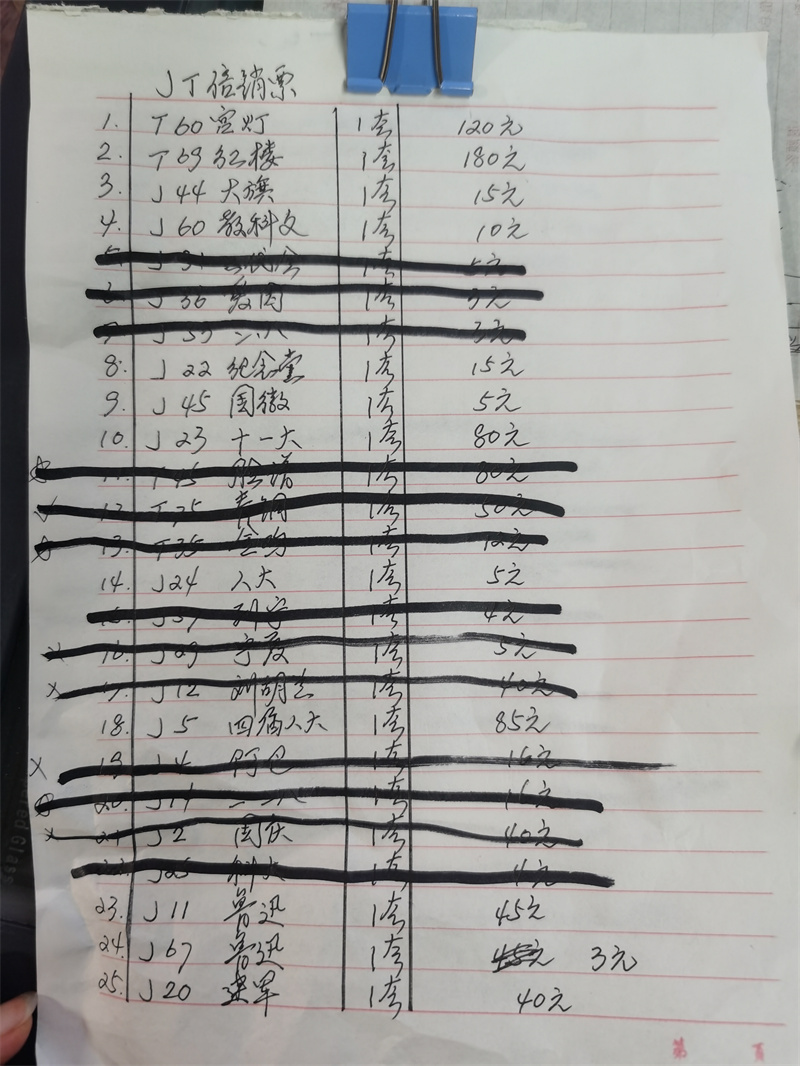 JT倍销票
1. T60 宫灯 1套 120元
2. T69 红楼 1套 180元
3. J44 大旗 1套 15元
4. J60 教科文 1套 10元
5. J 1套 5元
6. J36 1套 3元
7. J 1套 3元
8. J22 纪念堂 1套 15元
9. J45 国徽 1套 5元
10. J23 十一大 1套 80元
11. T45 脸谱 1套 80元
12. T75 青铜 1套 50元
13. T35 金鱼 1套 12元
14. J24 人大 1套 5元
15. J 1套 4元
16. J 1套 5元
17. J12 刘胡兰 1套 40元
18. J5 四届人大 1套 85元
19. J4 阿巴 1套 16元
20. J14 二二八 1套 16元
21 J2 国庆 1套 40元
22. J25 科大 1套 4元
23. J11 鲁迅 1套 45元
24. J67 鲁迅 1套 3元
25. J20 建军 1套 40元
第 页